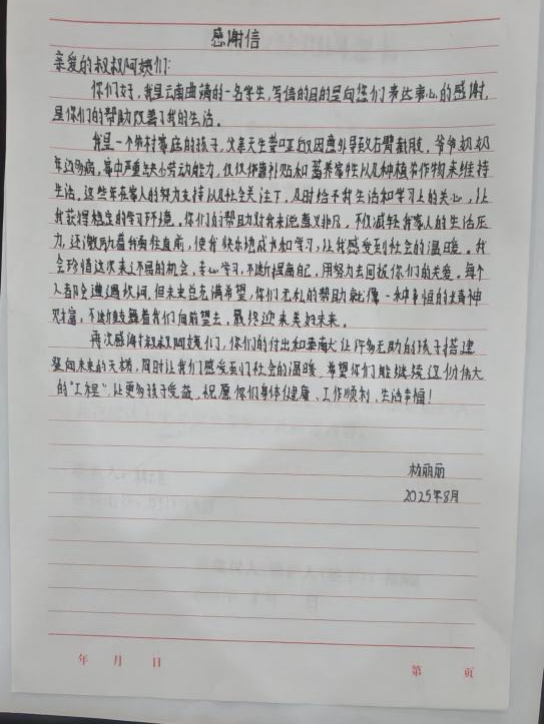 感谢信
亲爱的叔叔阿姨们:
你们好,我是云南曲靖的一名学生,写信的目的是向您们表达衷心的感谢,
是你们的帮助改善了我的生活。
我是一个农村家庭的孩子,父亲天生聋哑因意外导致右臂截肢,爷爷奶奶
年迈多病,家中严重缺少劳动能力,仅仅依靠补贴和蓄养家牲以及种植农作物来维持
生活。这些年在家人的努力支持以及社会关注下,及时给予我生活和学习上的关心,让
我获得稳定的学习环境。你们的帮助对我来说意义非凡,不仅减轻我家人的生活压
力,还激励着我勇往直前,使我快乐地成长和学习,让我感受到社会的温暖。我
会珍惜这次来之不易的机会,专心学习,不断提高自己,用努力去回报你们的关爱。每个
人都会遭遇坎坷,但未来总充满希望,你们无私的帮助就像一种永恒的精神
财富,不断鼓舞着我们向前望去,最终迎来美好未来。
再次感谢叔叔阿姨们,你们的付出和奉献让许多无助的孩子搭建
登向未来的天梯,同时让我们感受到社会的温暖,希望你们能继续这份伟大
的“工程”,让更多孩子受益。祝愿你们身体健康、工作顺利、生活幸福!
杨丽丽
2025年8月
年 月 日
第 页